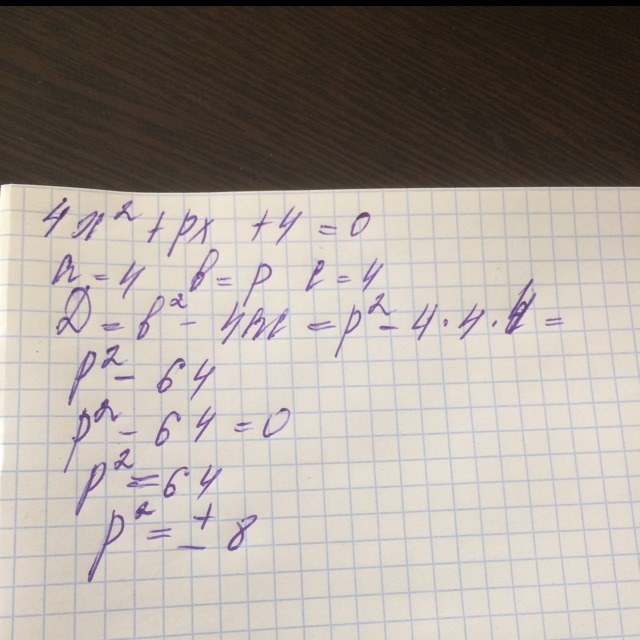 4x² + px + 4 = 0
a = 4 b = p c = 4
D = b² - 4ac = p² - 4·4·4 =
p² - 64
p² - 64 = 0
p² = 64
p² = ± 8